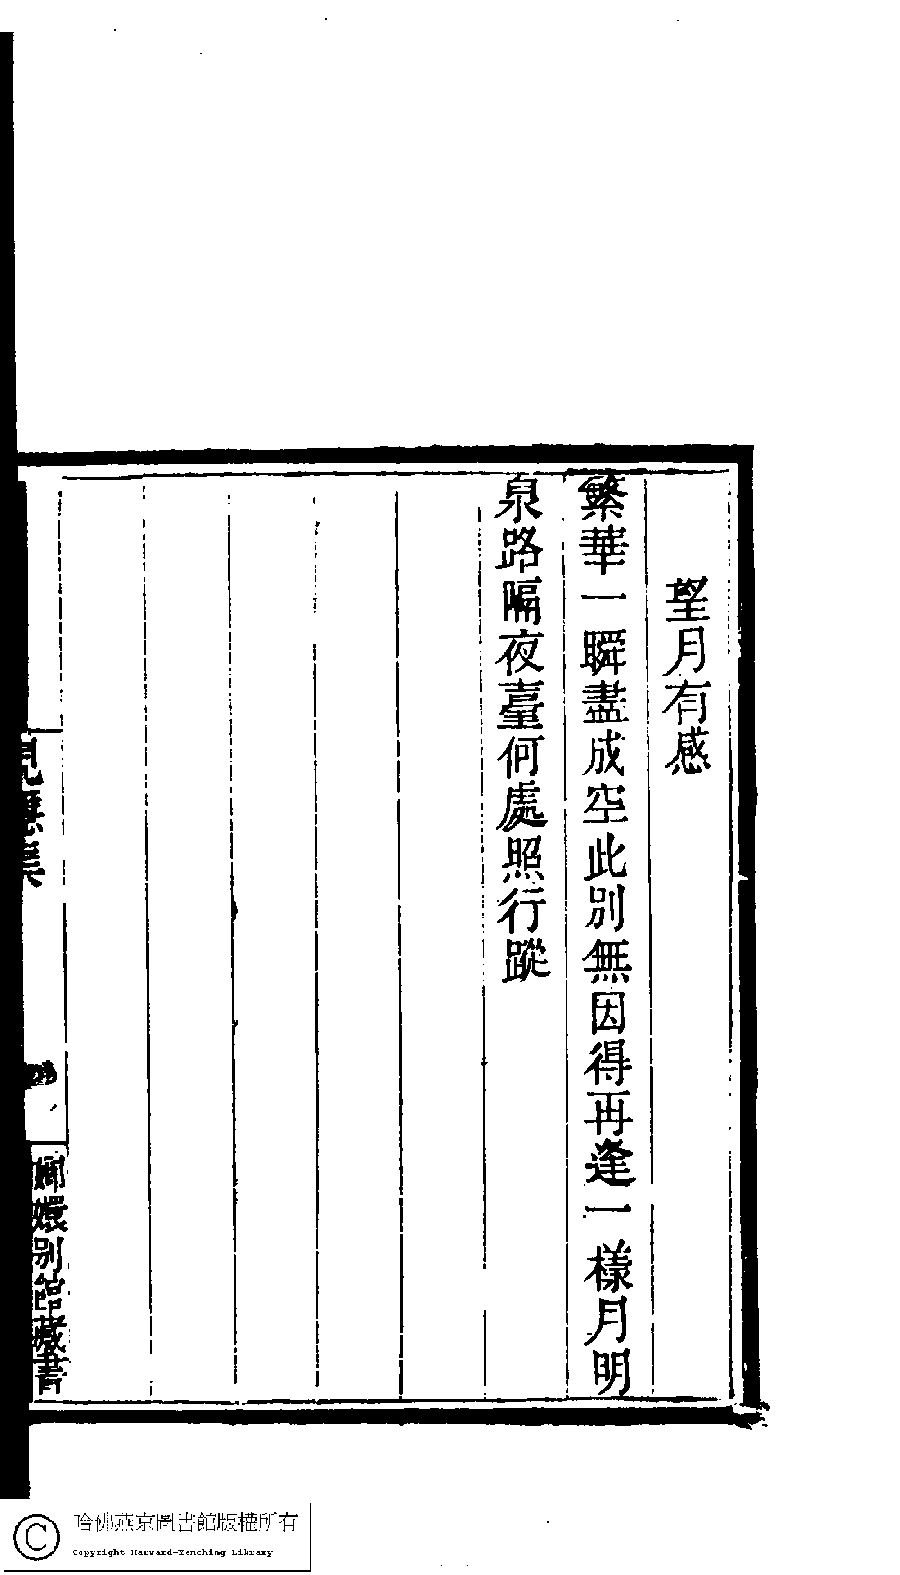 望月有感
繁華一瞬盡成空此別無因得再逢一樣月明
泉路隔夜臺何處照行蹤
嫏嬛別館藏書
哈佛燕京圖書館版權所有
Copyright Harvard-Yenching Library